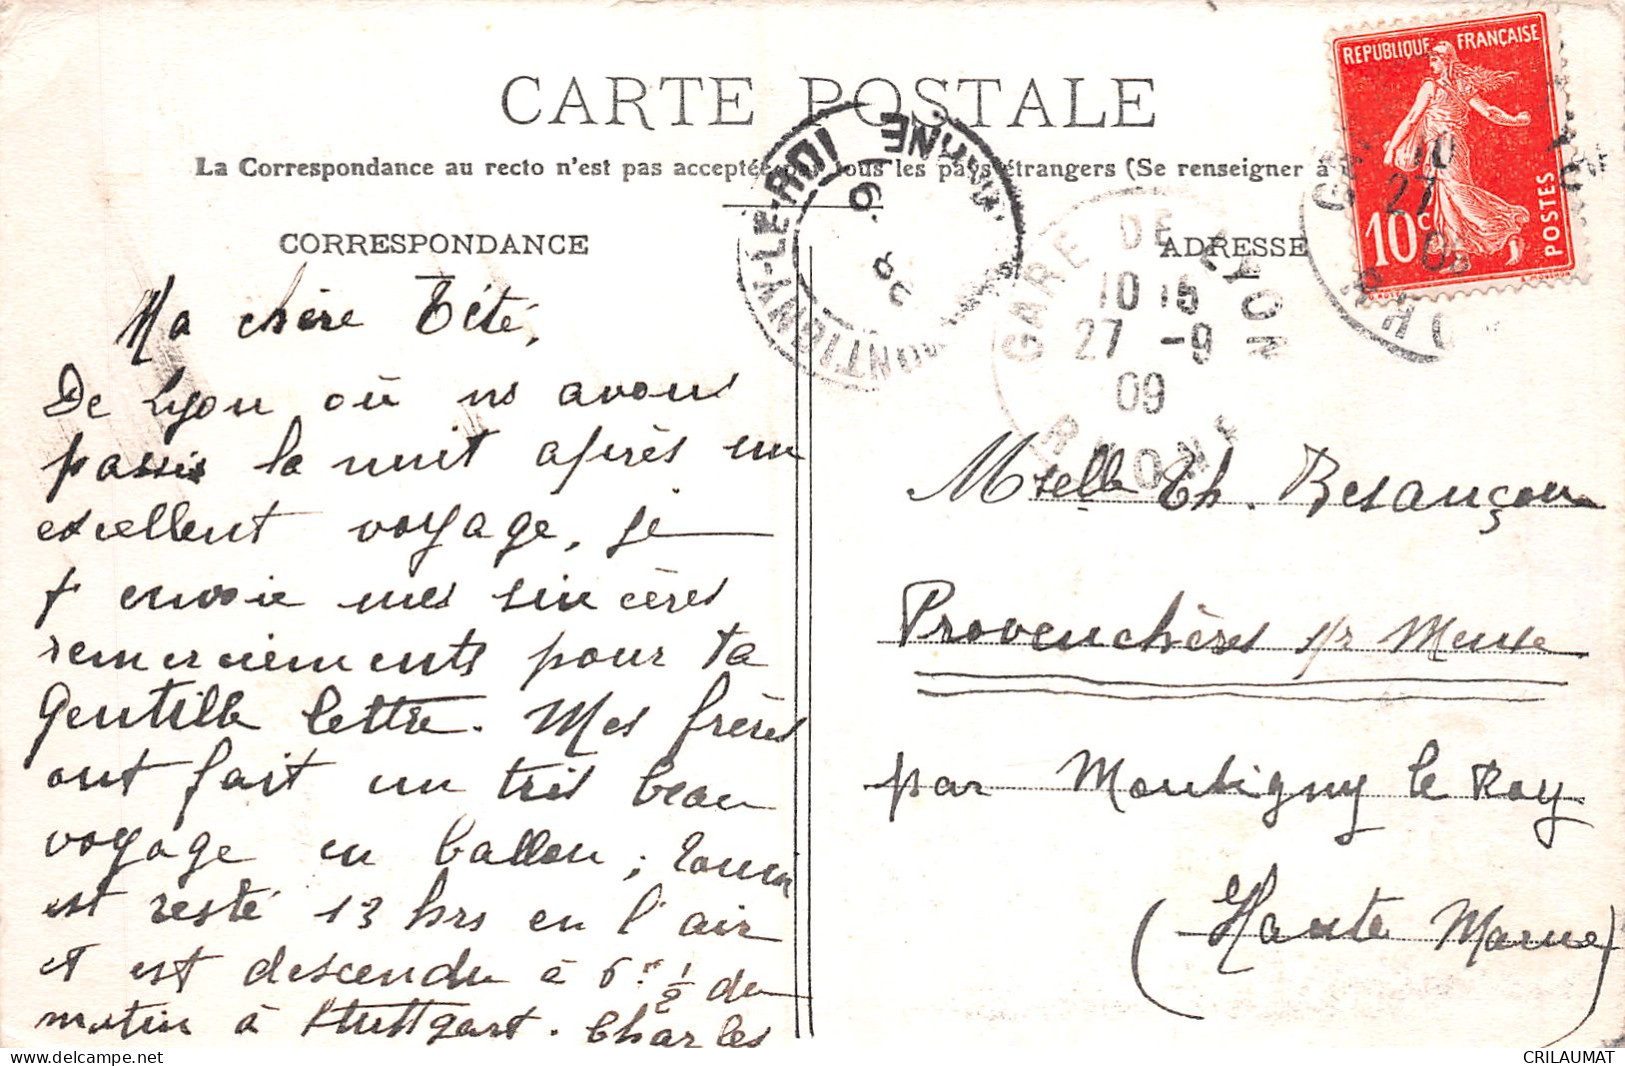 CARTE POSTALE
La Correspondance au recto n'est pas acceptée par tous les pays étrangers (Se renseigner à
CORRESPONDANCE
Ma chère Tété,
De Lyon où ns avons
passés la nuit après un
excellent voyage, je
t'envoie mes sincères
remerciements pour ta
gentille lettre. Mes frères
ont fait un très beau
voyage en ballon ; Louis
est resté 13 hrs en l'air
et est descendu à 6 hr 1/2 du
matin à Stuttgart. Charles
ADRESSE
Mselle Th. Besançon
Provenchères s/r Meuse
par Montigny le Roy
(Haute Marne)
REPUBLIQUE FRANÇAISE
10c POSTES
MONTIGNY-LE-ROI
GARE DE LYON
10 15
27 -9
09
RHONE
10
27
CRILAUMAT